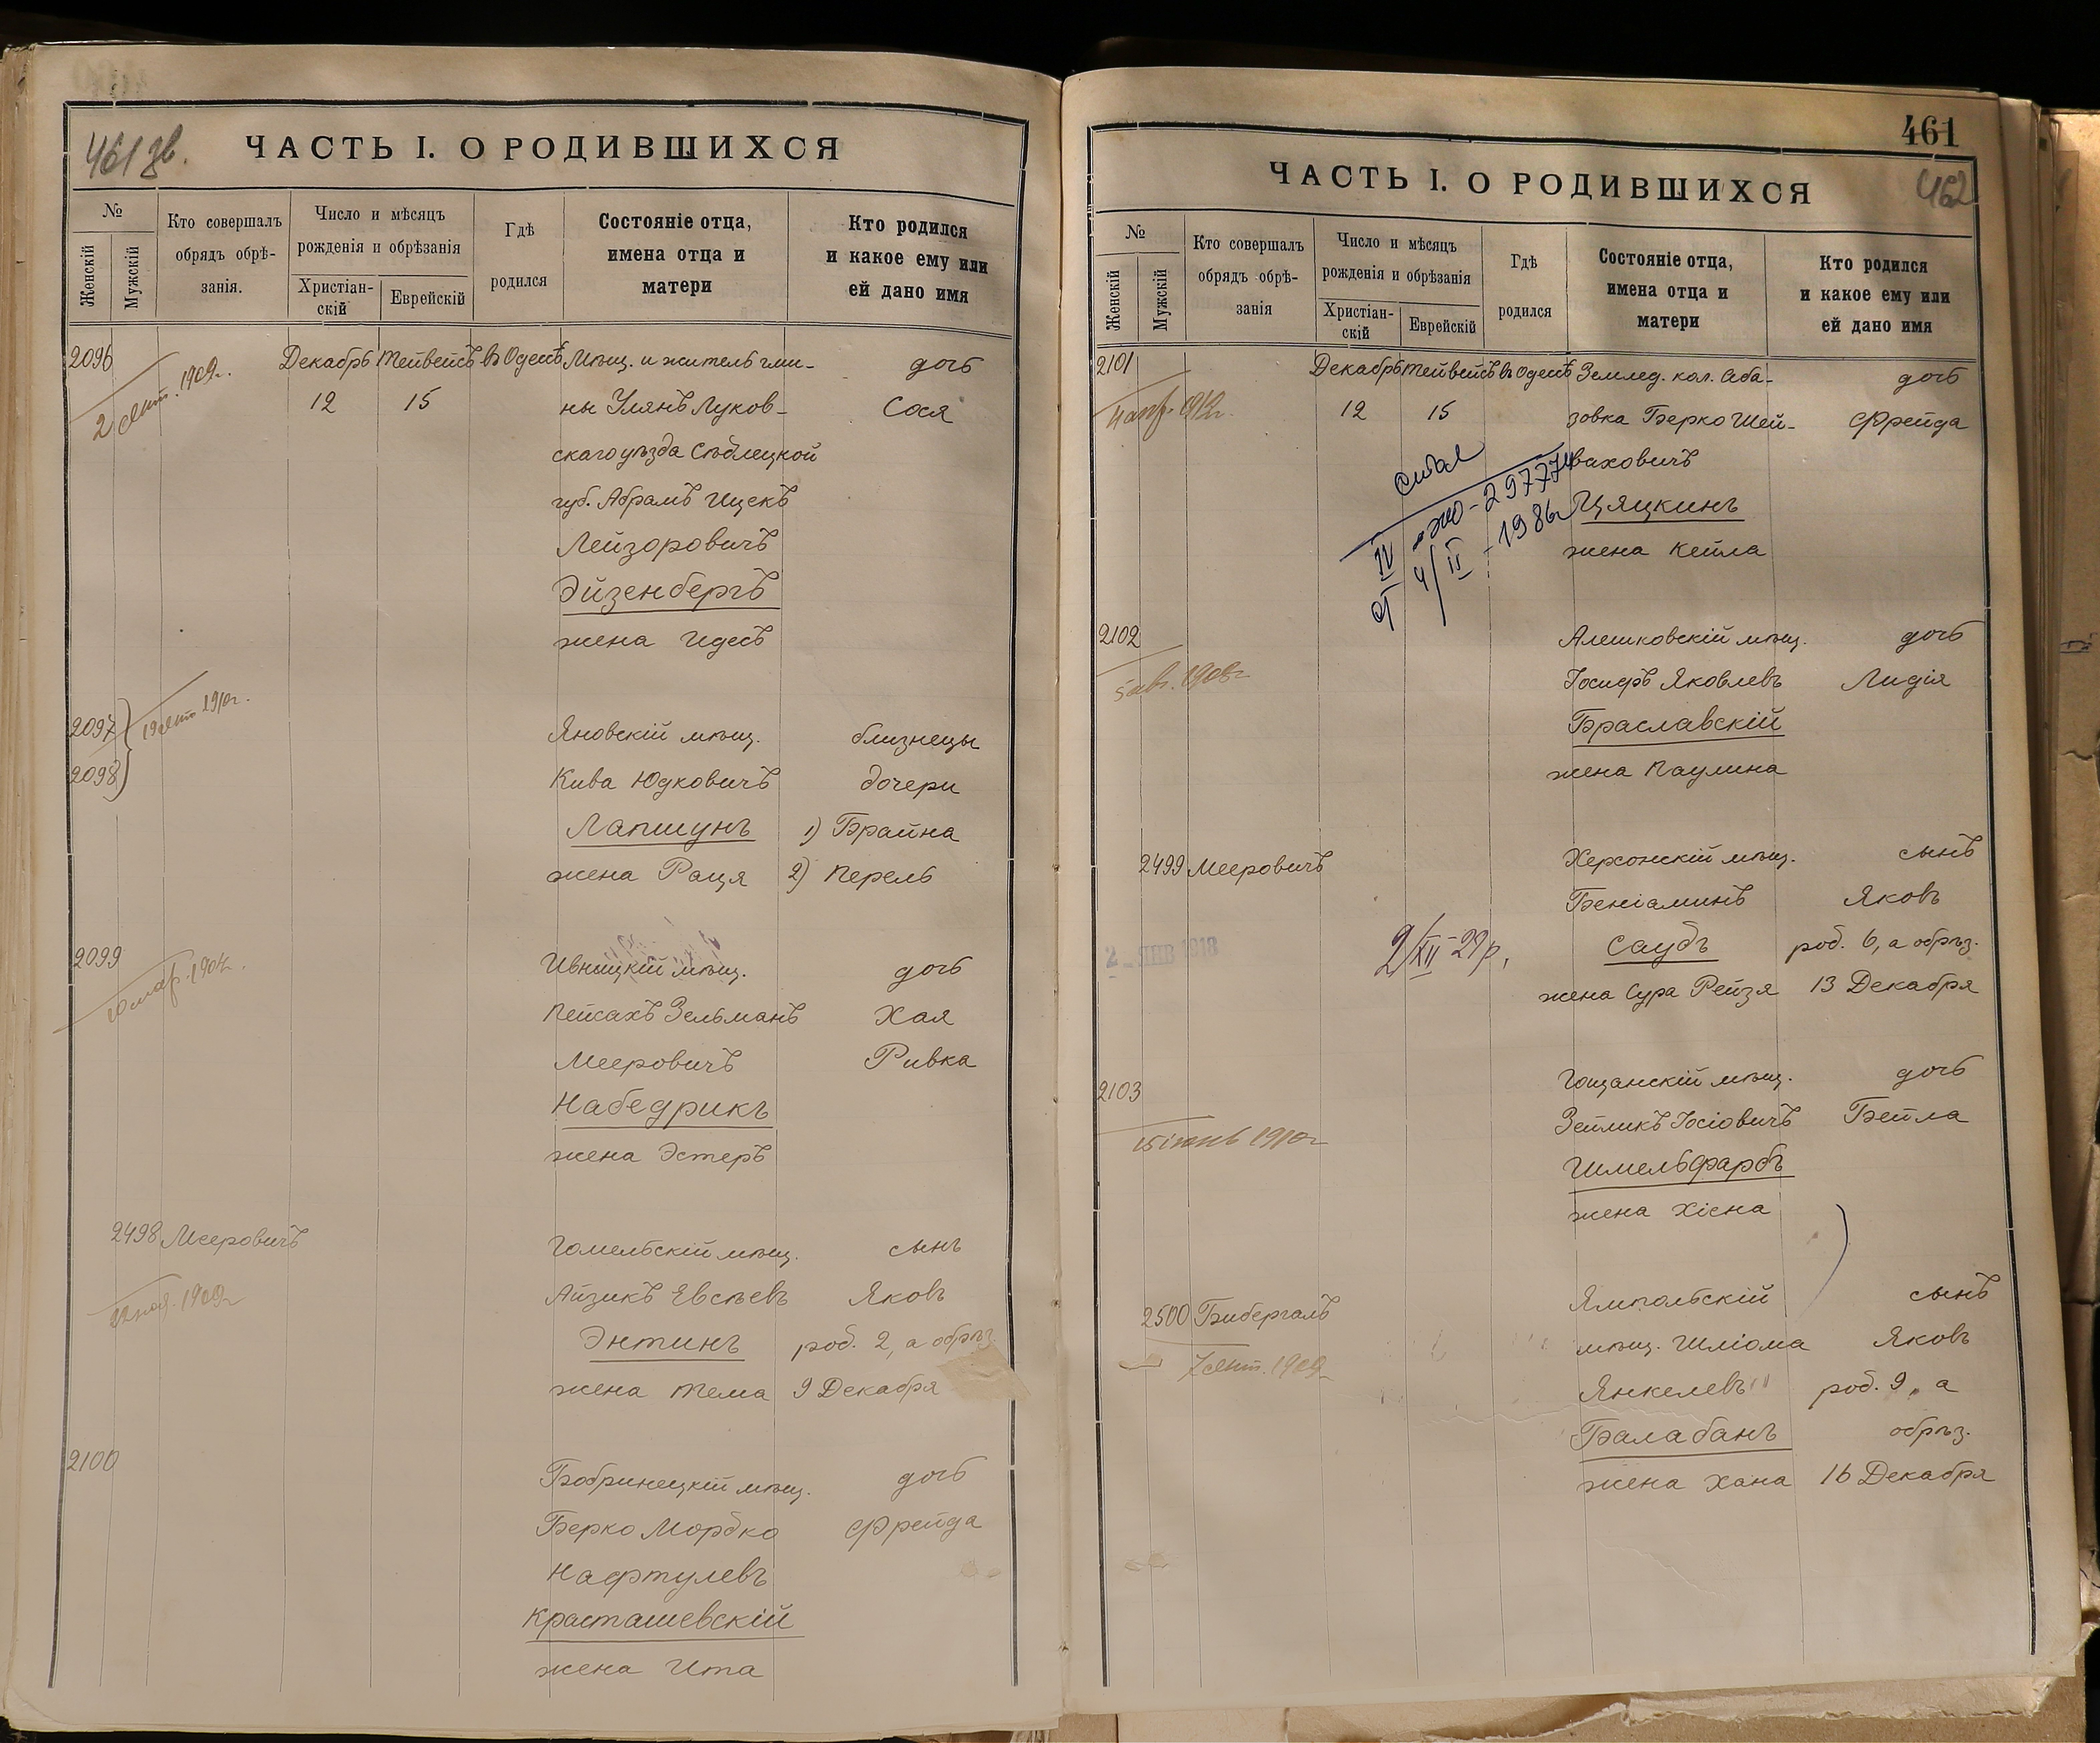 461 зв.
ЧАСТЬ I. О РОДИВШИХСЯ
№
Женскій
Мужскій
Кто совершалъ
обрядъ обрѣ-
занія.
Число и мѣсяцъ
рожденія и обрѣзанія
Христіан-
скій
Еврейскій
Гдѣ
родился
Состояніе отца,
имена отца и
матери
Кто родился
и какое ему или
ей дано имя
2096
2 сент. 1909г.
Декабрь Тейвейсъ въ Одессѣ Мѣщ. и житель гми- дочь
12 15 ны Улянъ Луков- Сося
скаго уѣзда Сѣдлецкой
губ. Абрамъ Ицекъ
Лейзоровичъ
Эйзенбергъ
жена Идесъ
2097
2098
19 сент 1910г.
Яновскій мѣщ. близнецы
Кива Юдковичъ дочери
Лапшунъ 1) Брайна
жена Раця 2) Перель
2099
Ивницкій мѣщ. дочь
Пейсахъ Зельманъ Хая
Мееровичъ Ривка
Набедрикъ
жена Эстеръ
2498 Мееровичъ
Гомельскій мѣщ. сынъ
Айзикъ Евсѣевъ Яковъ
Энтинъ род. 2, а обрѣз.
жена Тема 9 Декабря
2100
Бобринецкій мѣщ. дочь
Берко Мордко Фрейда
Нафтулевъ
Красташевскій
жена Ита
461
462
ЧАСТЬ I. О РОДИВШИХСЯ
№
Женскій
Мужскій
Кто совершалъ
обрядъ обрѣ-
занія
Число и мѣсяцъ
рожденія и обрѣзанія
Христіан-
скій
Еврейскій
Гдѣ
родился
Состояніе отца,
имена отца и
матери
Кто родился
и какое ему или
ей дано имя
2101
Декабрь Тейвейсъ въ Одессѣ Землед. кол. Аба- дочь
12 15 зовка Берко Шей- Фрейда
ваховичъ
Цяцкинъ
жена Кейла
IV-ЖО-297774
4/II-1986г
2102
5 авг. 1908г
Алешковскій мѣщ. дочь
Іосифъ Яковлевъ Лидія
Браславскій
жена Паулина
2499 Мееровичъ
Херсонскій мѣщ. сынъ
Беніаминъ Яковъ
2 - ЯНВ 1918
2/XII-29р.
Саубъ род. 6, а обрѣз.
жена Сура Рейзя 13 Декабря
2103
15 іюнь 1910г
Гощанскій мѣщ. дочь
Зейликъ Іосіовичъ Бейла
Шмельфарбъ
жена Хісна
2500 Бибергалъ
7 сент. 1909
Ямпольскій сынъ
мѣщ. Шліома Яковъ
Янкелевъ род. 9, а
Балабанъ обрѣз.
жена Хана 16 Декабря